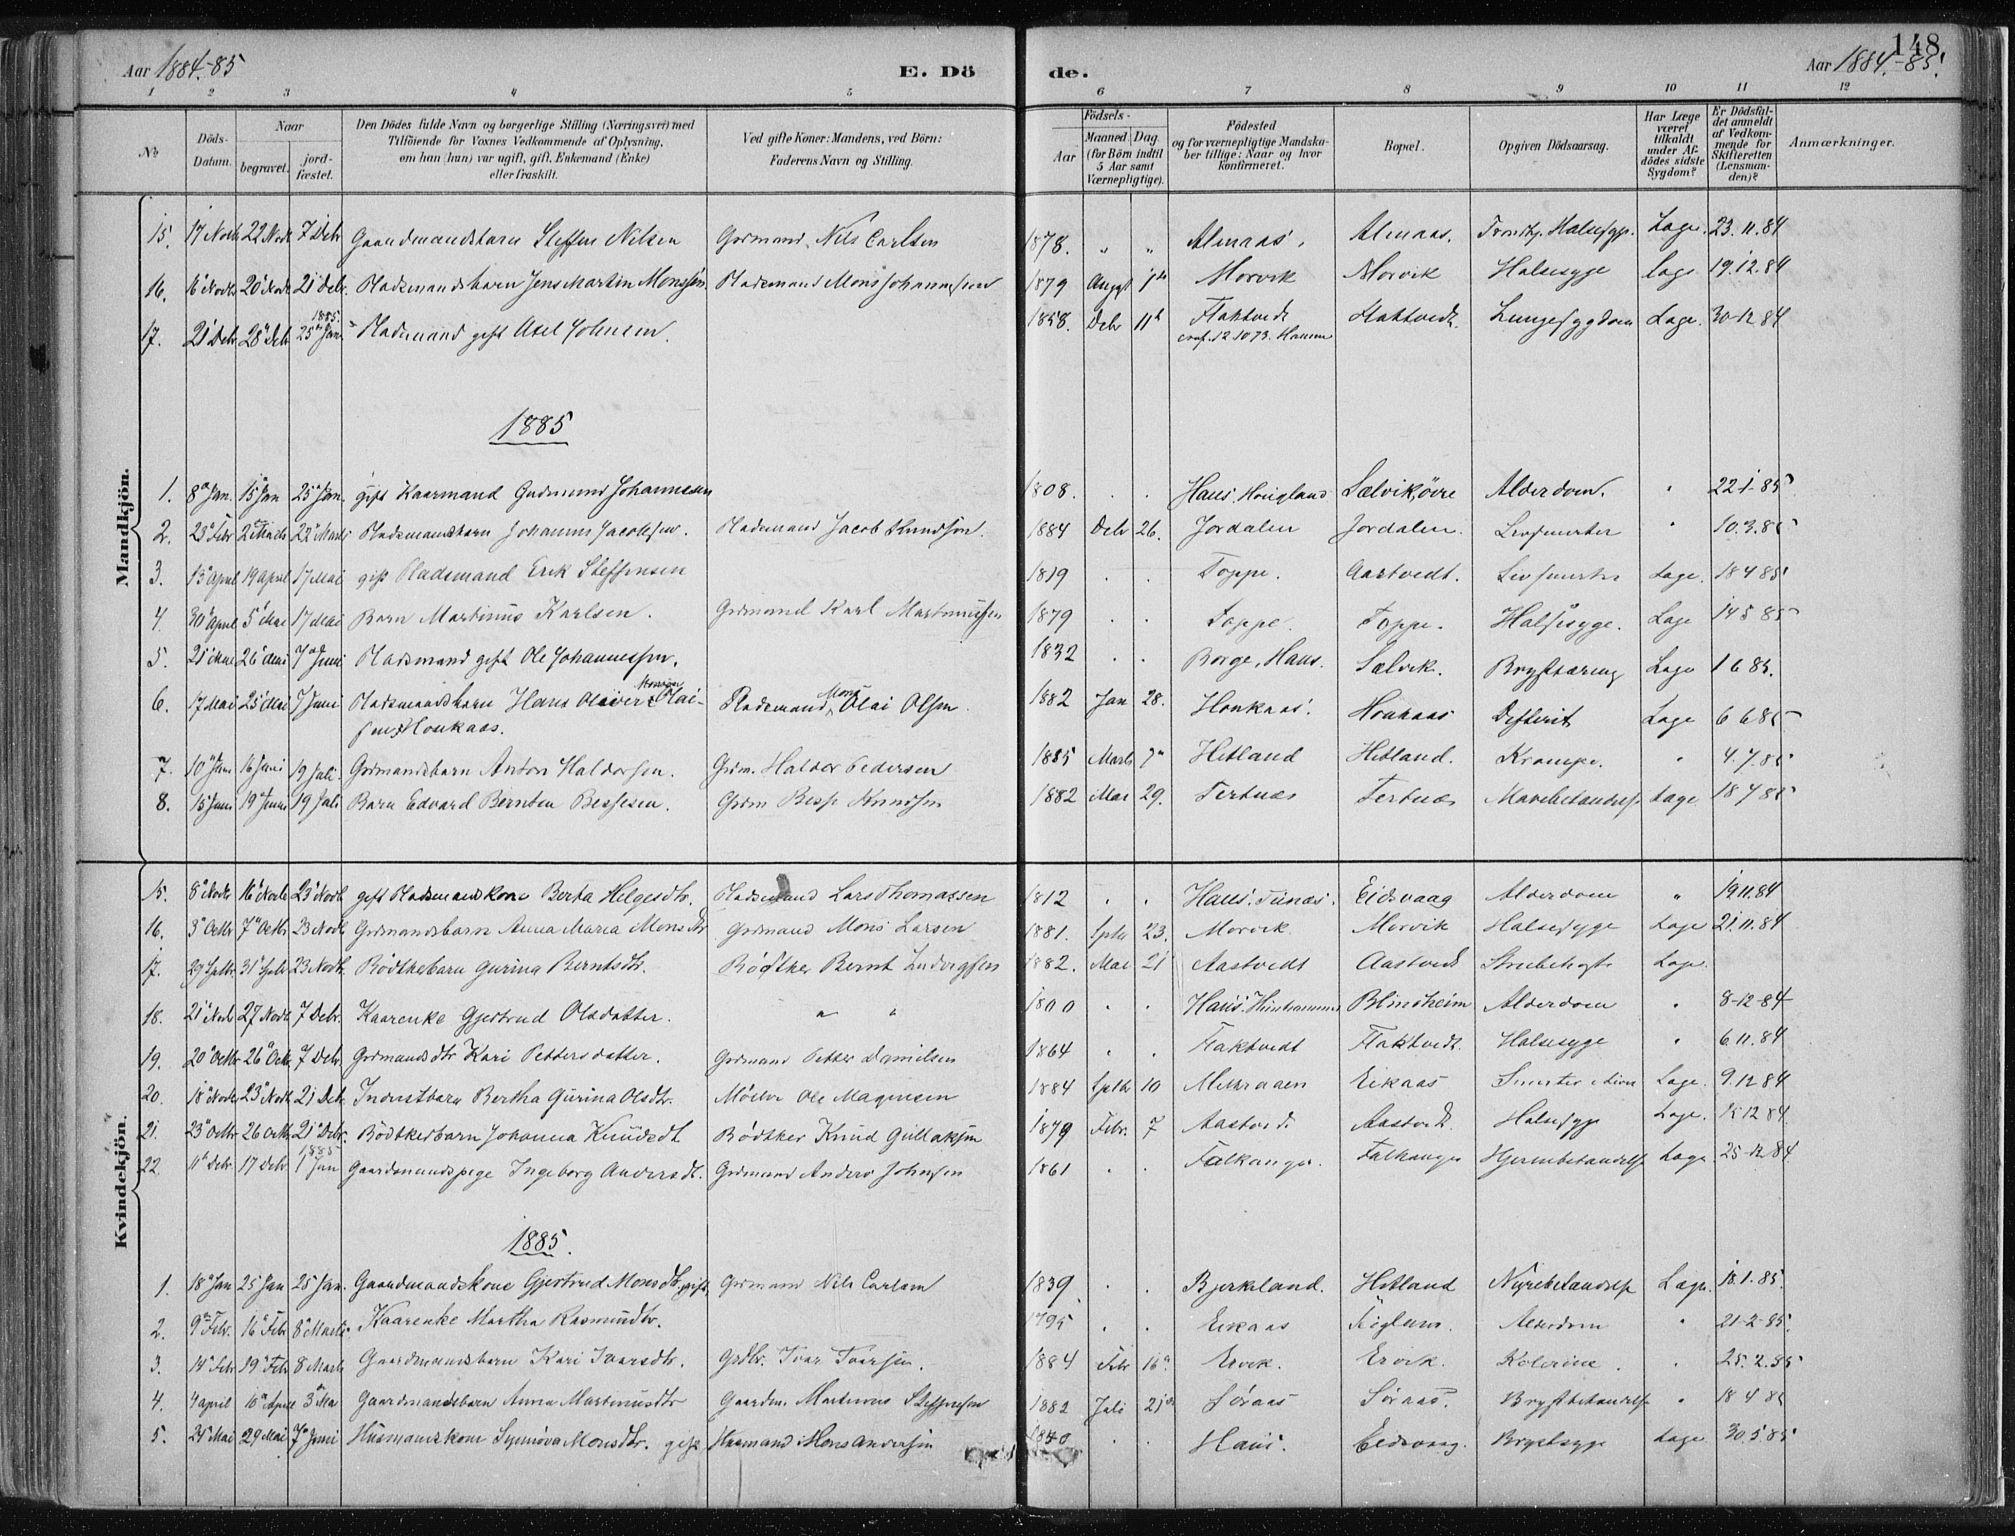 148
Aar 1884.-85
E. Dö
de.
Aar 1884.-85.
1 2 3 4 5 6 7 8 9 10 11 12
№
Döds-Datum.
Naar
begravet.
jord-fæstet.
Den Dödes fulde Navn og borgerlige Stilling (Næringsvei) med Tilföiende for Voxnes Vedkommende af Oplysning, om han (hun) var ugift, gift, Enkemand (Enke) eller fraskilt.
Ved gifte Koner: Mandens, ved Börn: Faderens Navn og Stilling.
Födsels-
Aar
Maaned
Dag.
(for Börn indtil 5 Aar samt Værnepligtige).
Födested og for værnepligtige Mandskaber tillige: Naar og hvor konfirmeret.
Bopæl.
Opgiven Dödsaarsag.
Har Læge været tilkaldt under Afdödes sidste Sygdom?
Er Dödsfaldet anmeldt af Vedkommende for Skifteretten (Lensmanden)?
Anmærkninger.
Mandkjön.
15. 17 Novbr 22 Novbr 7 Debr Gaardmandsbarn Steffen Nilsen Grdmand, Nils Carlsen 1878. " " Almaas. Almaas. Halsesyge. Læge. 23.11.84
16. 16 Novbr 20 Novbr 21 Debr. Pladsmandsbarn Jens Martin Monssen Pladsmand Mons Johannesen 1879 August Morvik Morvik Halsesyge Læge 19.12.84
17. 21 Debr 28 Debr 1885. 25 Jan. Pladsmand gift Axel Johnsen. 1858. Debr 11 Flaktvedt conf. 12.10 73. Hammer Flaktvedt. Lungesygdom Læge. 30-12 84
1885
1. 8 Jan. 15 Jan 25 Jan. gift Kaarmand Gudmund Johannesen 1808. . . Haus, Hougland Sælvik, övre Alderdom. " 22-1-85
2. 23 Febr 2 Marts 22 Marts Pladsmandsbarn Johannes Jacobsen. Pladsmand Jacob Knudsen. 1884 Debr 26. Jordalen Jordalen. " 10.3.85
3. 13 April 19 April 17 Mai gift Pladsmand Erik Steffensen 1819 . . Toppe. Aastvedt. Læge. 18 4 85
4. 30 April 5 Mai 17 Mai Barn Martinus Karlsen. Grdmand Karl Martinussen 1879 . . Toppe. Toppe. Halsesyge. Læge 14 5 85
5. 21 Mai 26 Mai 7 Juni Pladsmand gift Ole Johannessen. 1832 . . Borge, Haus. Sælvik. Brysttæring Læge 1 6 85.
6. 17 Mai 25 Mai 7 Juni Pladsmandsbarn Hans Oliver Monsen Olai-
sen Honkaas. Pladsmand Mons Olai Olsen. 1882 Jan 28. Honkaas. Honkaas Defterit Læge 6 6 85
7. 10 Juni 16 Juni 19 Juli. Grdmandsbarn Anton Haldorsen. Grdm. Haldor Pedersen 1885 Marts 7 Hetland Hetland. Krampe. " 4.7.85
8. 15 Juni 19 Juni 19 Juli Barn Edvard Berntin Bessesen. Grdm Besse Knudsen 1882 Mai 29. Tertnæs Tertnæs Mavebetændelse Læge 18 7 85
Kvindekjön.
15. 8 Novbr 16 Novbr 23 Novbr gift Pladsmandskone Berta Helgesdtr. Pladsmand Lars Thomassen 1812 . . Haus. Tunæs. Eidsvaag Alderdom " 19.11.84
16. 3 Octbr 7 Octbr 23 Novbr. Grdmandsbarn Anna Maria Monsdtr Grdmand Mons Larsen 1881. Sptbr 23. Morvik Morvik Halsesyge Læge 21.11.84
17. 29 Sptbr. 31 23 Novbr. Bödtkerbarn Gurina Berntsdtr. Bödtker Bernt Ludvigsen 1882. Mai 21 Aastvedt Aastvedt Strubehoste Læge.
18. 21 Novbr 27 Novbr. 7 Debr. Kaarenke Gjertrud Olsdatter. " " 1800 . . Haus. Blindheim Alderdom " 8-12-84
19. 20 Octbr 26 Octbr. 7 Debr. Grdmandsdtr Kari Pettersdatter. Grdmand Petter Danielsen 1864 . . Flaktvedt Flaktvedt. Halsesyge " 6.11.84
20. 18 Novbr 23 Novbr. 21 Debr. Industbarn Bertha Gurina Olsdtr. Möller Ole Magnesen 1884 Sptbr 10 Eikaas Læge. 9.12 84
21. 23 Octbr 26 Octbr. 21 Debr. Bödtkerbarn Johanna Knudsdt. Bödtker Knud Gullaksen 1879 Febr. 7 Aastvedt Aastvedt. Halsesyge Læge. 15.12 84
22. 11 Debr. 17 Debr 1885 1 Jan Gaardmandspige Ingeborg Andersdt. Grdmand Anders Johnsen 1861 . . Falkanger. Falkanger Hjernebetændelse Læge 25-12 84
1885.
1. 18 Jan 25 Jan 25 Jan. Gaardmandskone Gjertrud Monsdtr, gift. Grdmand Nils Carlsen 1839 . . Bjerkeland. Hetland Nyrebetændelse Læge. 18.1.85.
2. 9 Febr. 16 Febr 8 Marts. Kaarenke Martha Rasmusdtr. 1795 . . Eikaas Alderdom " 21-2-85.
3. 14 Febr 19 Febr 8 Marts Gaardmandsbarn Kari Ivarsdtr. Grdbr. Ivar Ivarsen. 1884 Febr 16 Ervik. Ervik. Kolerine. . 25.2.85
4. 4 april 16 April 3 Mai Gaardmandsbarn Anna Martinusdtr Gaardm. Martinus Steffensen 1882 Juli 21 Söraas Söraas. Brystbetændelse " 18 4 85
5. 24 Mai 29 Mai 7 Juni Husmandskone Synnöva Monsdtr. gift Husmand Mons Andersen 1840 . . Haus. Eidsvaag. Brystsyge Læge 30.5.85